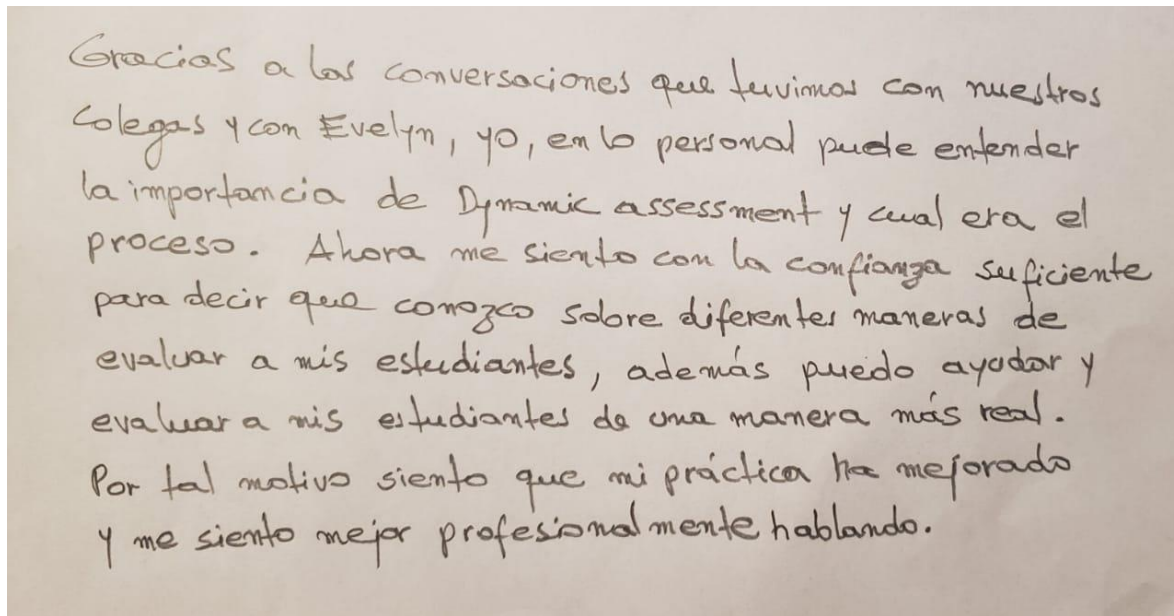 Gracias a las conversaciones que tuvimos con nuestros
Colegas y con Evelyn, yo, en lo personal pude entender
la importancia de Dynamic assessment y cual era el
proceso. Ahora me siento con la confianza suficiente
para decir que conozco sobre diferentes maneras de
evaluar a mis estudiantes, además puedo ayudar y
evaluar a mis estudiantes de una manera más real.
Por tal motivo siento que mi práctica ha mejorado
y me siento mejor profesionalmente hablando.